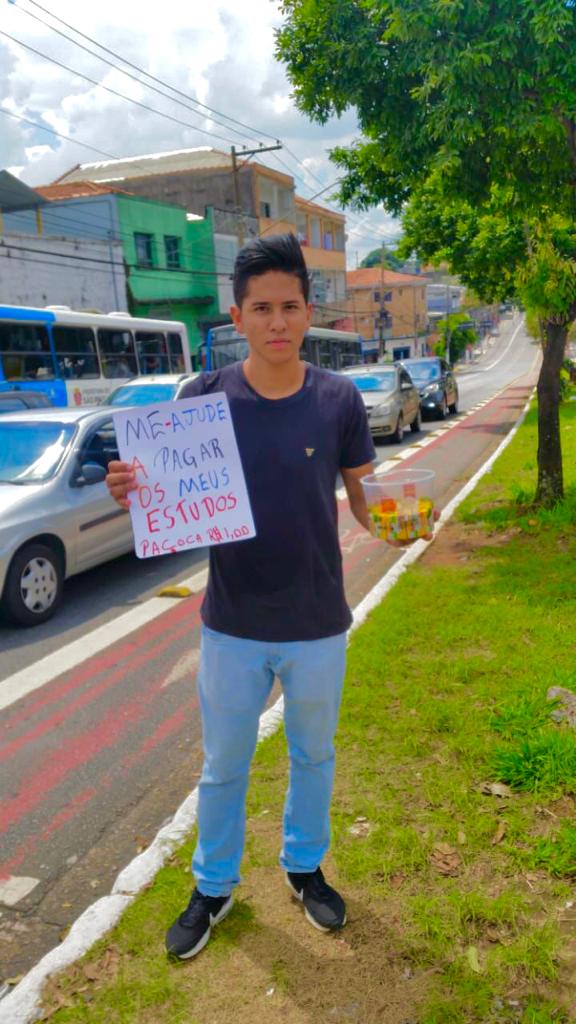 ME-AJUDE
A PAGAR
OS MEUS
ESTUDOS
PAÇOCA R$1,00